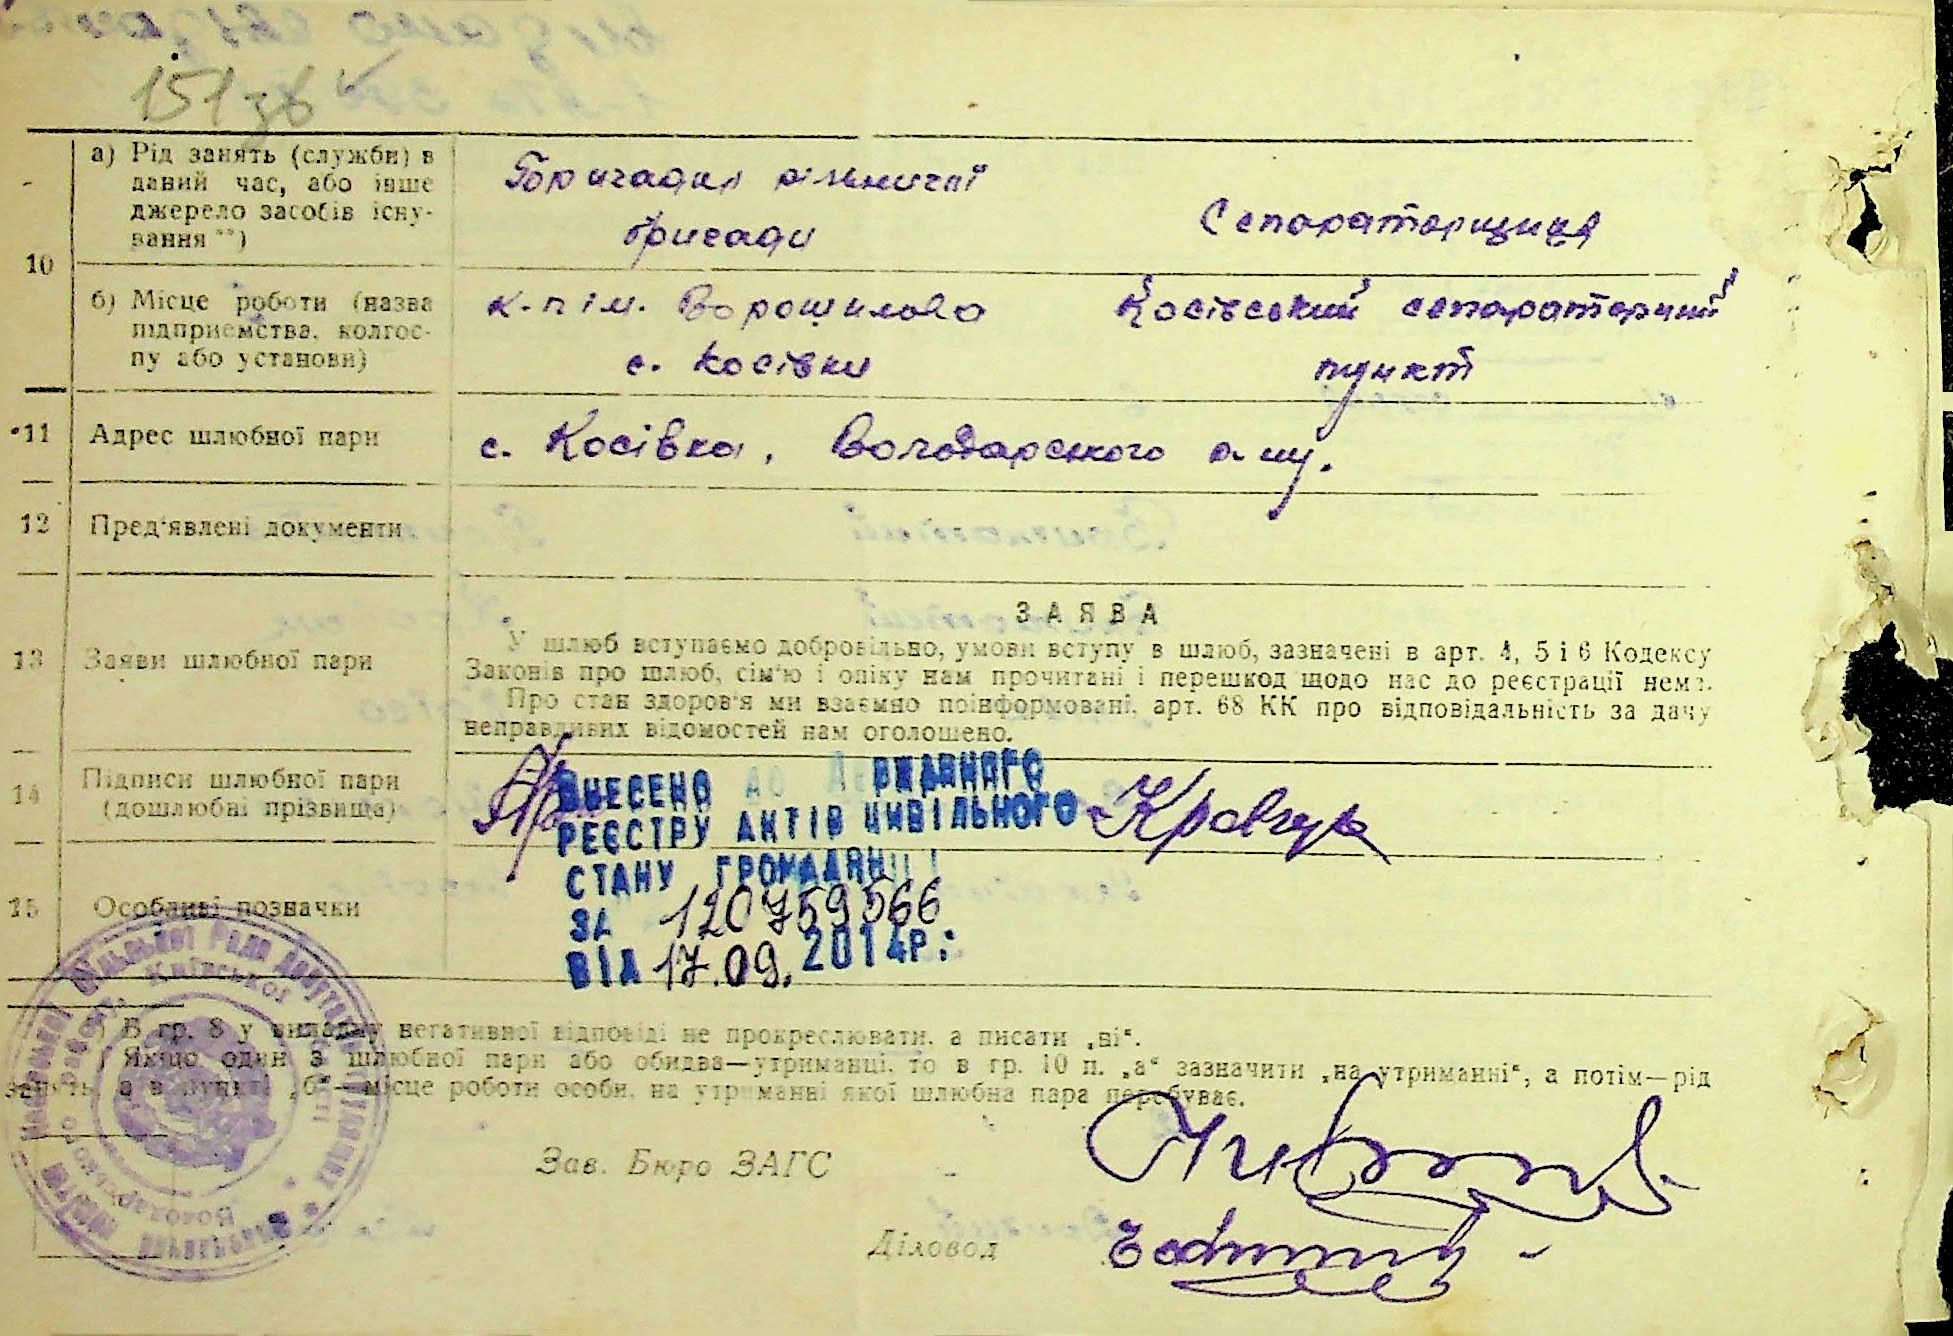 151 зв
10
а) Рід занять (служби) в
даний час, або інше
джерело засобів існу-
вання **)
Бригадир рільничої
бригади
Сепараторщиця
б) Місце роботи (назва
підприємства, колгос-
пу або установи)
к-п ім. Ворошилова
с. Косівки
Косівський сепараторний
пункт
11 Адрес шлюбної пари
с. Косівка, Володарського р-ну.
12 Пред'явлені документи
13 Заяви шлюбної пари
ЗАЯВА
У шлюб вступаємо добровільно, умови вступу в шлюб, зазначені в арт. 4, 5 і 6 Кодексу
Законів про шлюб, сім'ю і опіку нам прочитані і перешкод щодо нас до реєстрації нема.
Про стан здоров'я ми взаємно поінформовані, арт. 68 КК про відповідальність за дачу
неправдивих відомостей нам оголошено.
14 Підписи шлюбної пари
(дошлюбні прізвища)
Кравчук
ВНЕСЕНО ДО ДЕРЖАВНОГО
РЕЄСТРУ АКТІВ ЦИВІЛЬНОГО
СТАНУ ГРОМАДЯН
ЗА 120759566
ВІД 17.09.2014Р.:
15 Особливі позначки
) В гр. 8 у випадку негативної відповіді не прокреслювати, а писати „ні“.
) Якщо один з шлюбної пари або обидва—утриманці, то в гр. 10 п. „а“ зазначити „на утриманні“, а потім—рід
занять, а в пункті „б“—місце роботи особи, на утриманні якої шлюбна пара перебуває.
Зав. Бюро ЗАГС
Діловод